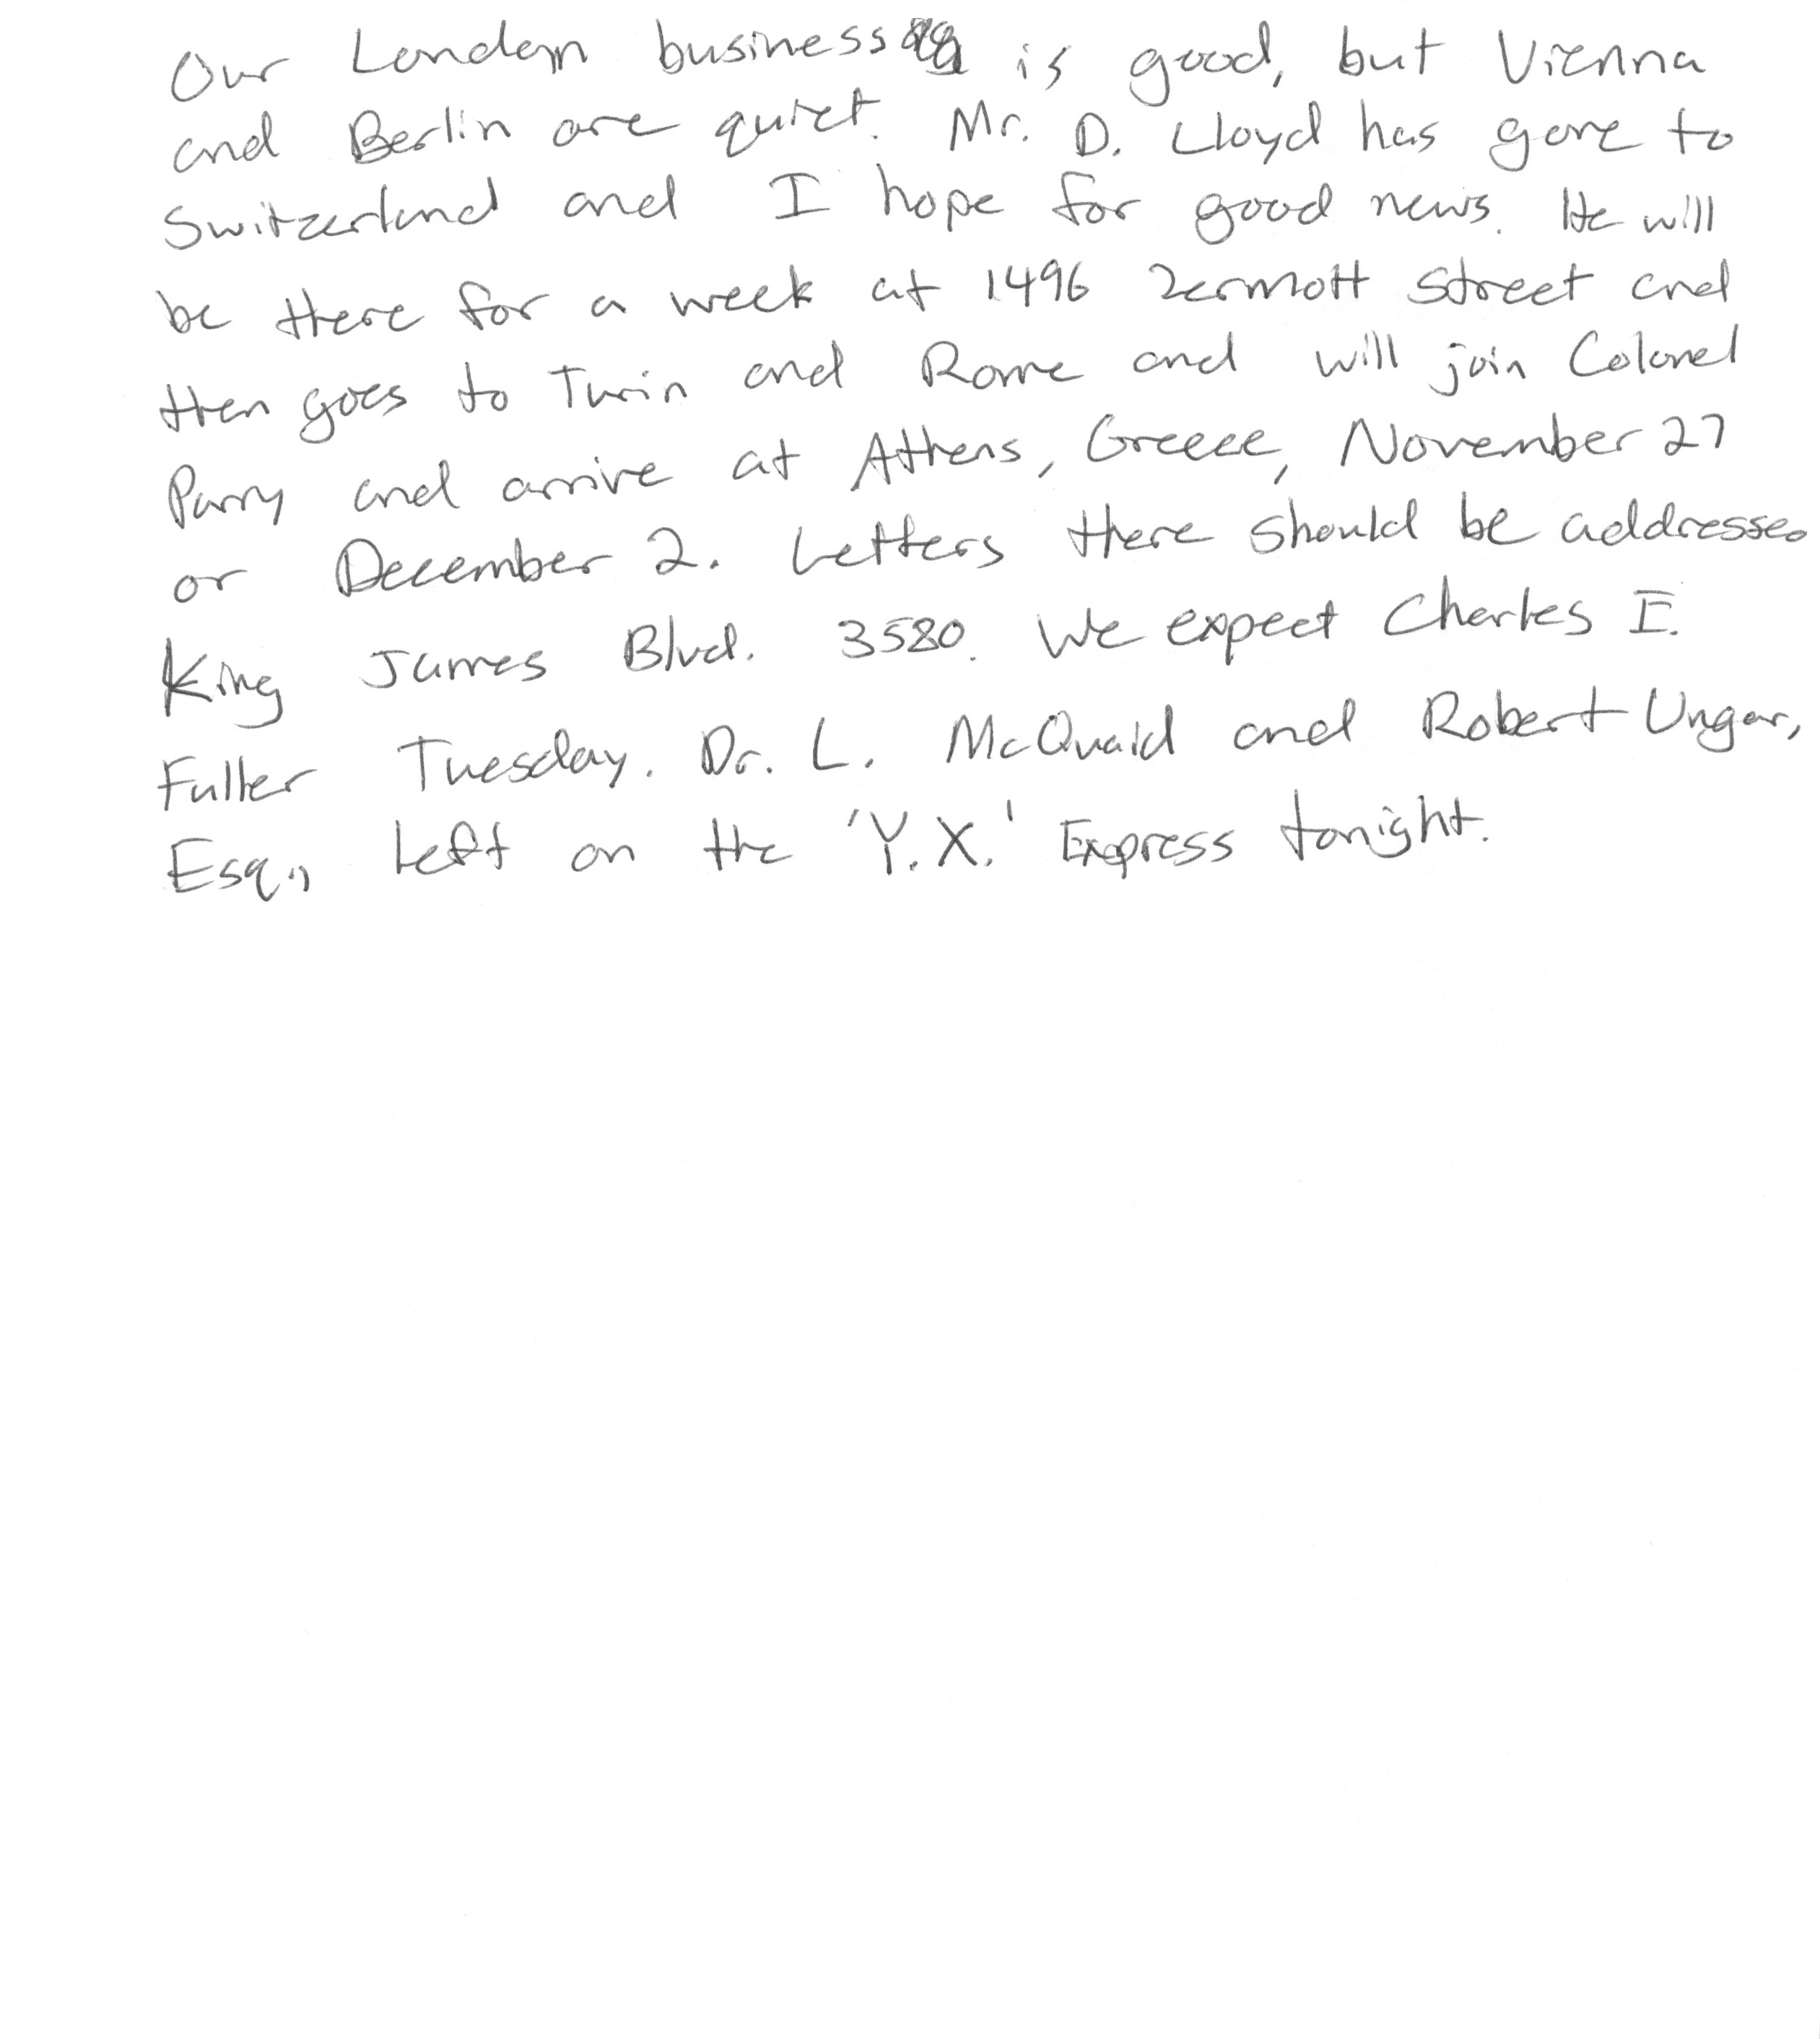 Our London business is good, but Vienna
and Berlin are quiet. Mr. D. Lloyd has gone to
Switzerland and I hope for good news. He will
be there for a week at 1496 Zermott Street and
then goes to Turin and Rome and will join Colonel
Parry and arrive at Athens, Greece, November 27
or December 2. Letters there should be addressed
King James Blvd. 3580. We expect Charles E.
Fuller Tuesday. Dr. L. McQuaid and Robert Unger,
Esq., left on the 'Y.X.' Express tonight.